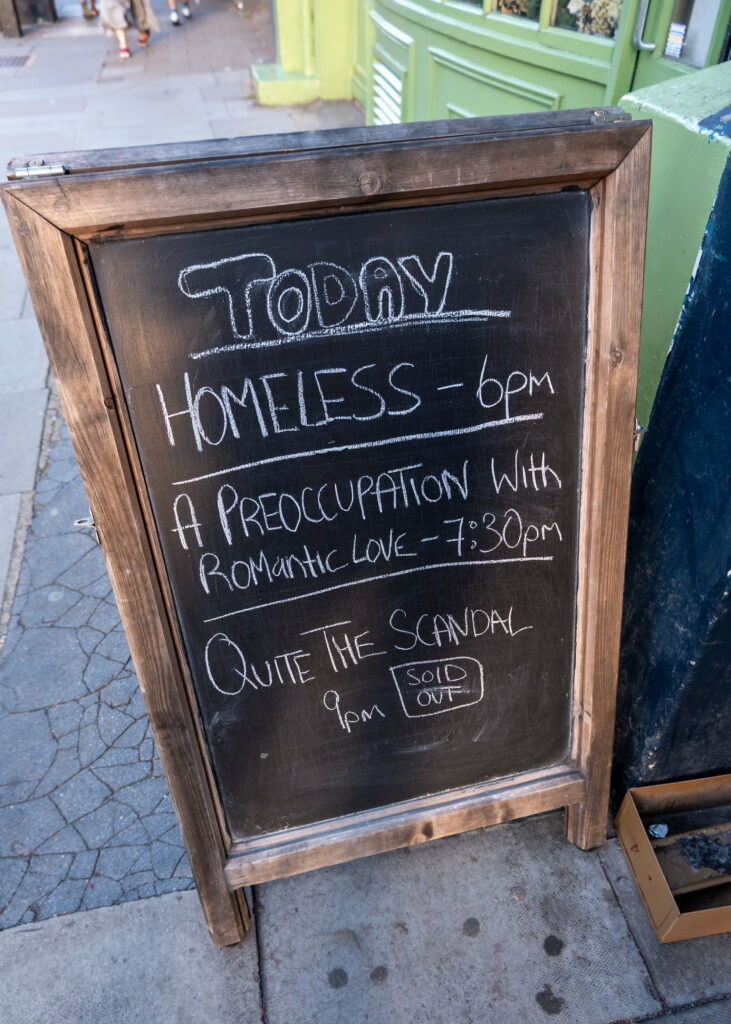 TODAY
HOMELESS – 6pm
A PREOCCUPATION With
RomAntic LOVE – 7:30pm
QUITE THE SCANDAL
9pm SOLD
OUT